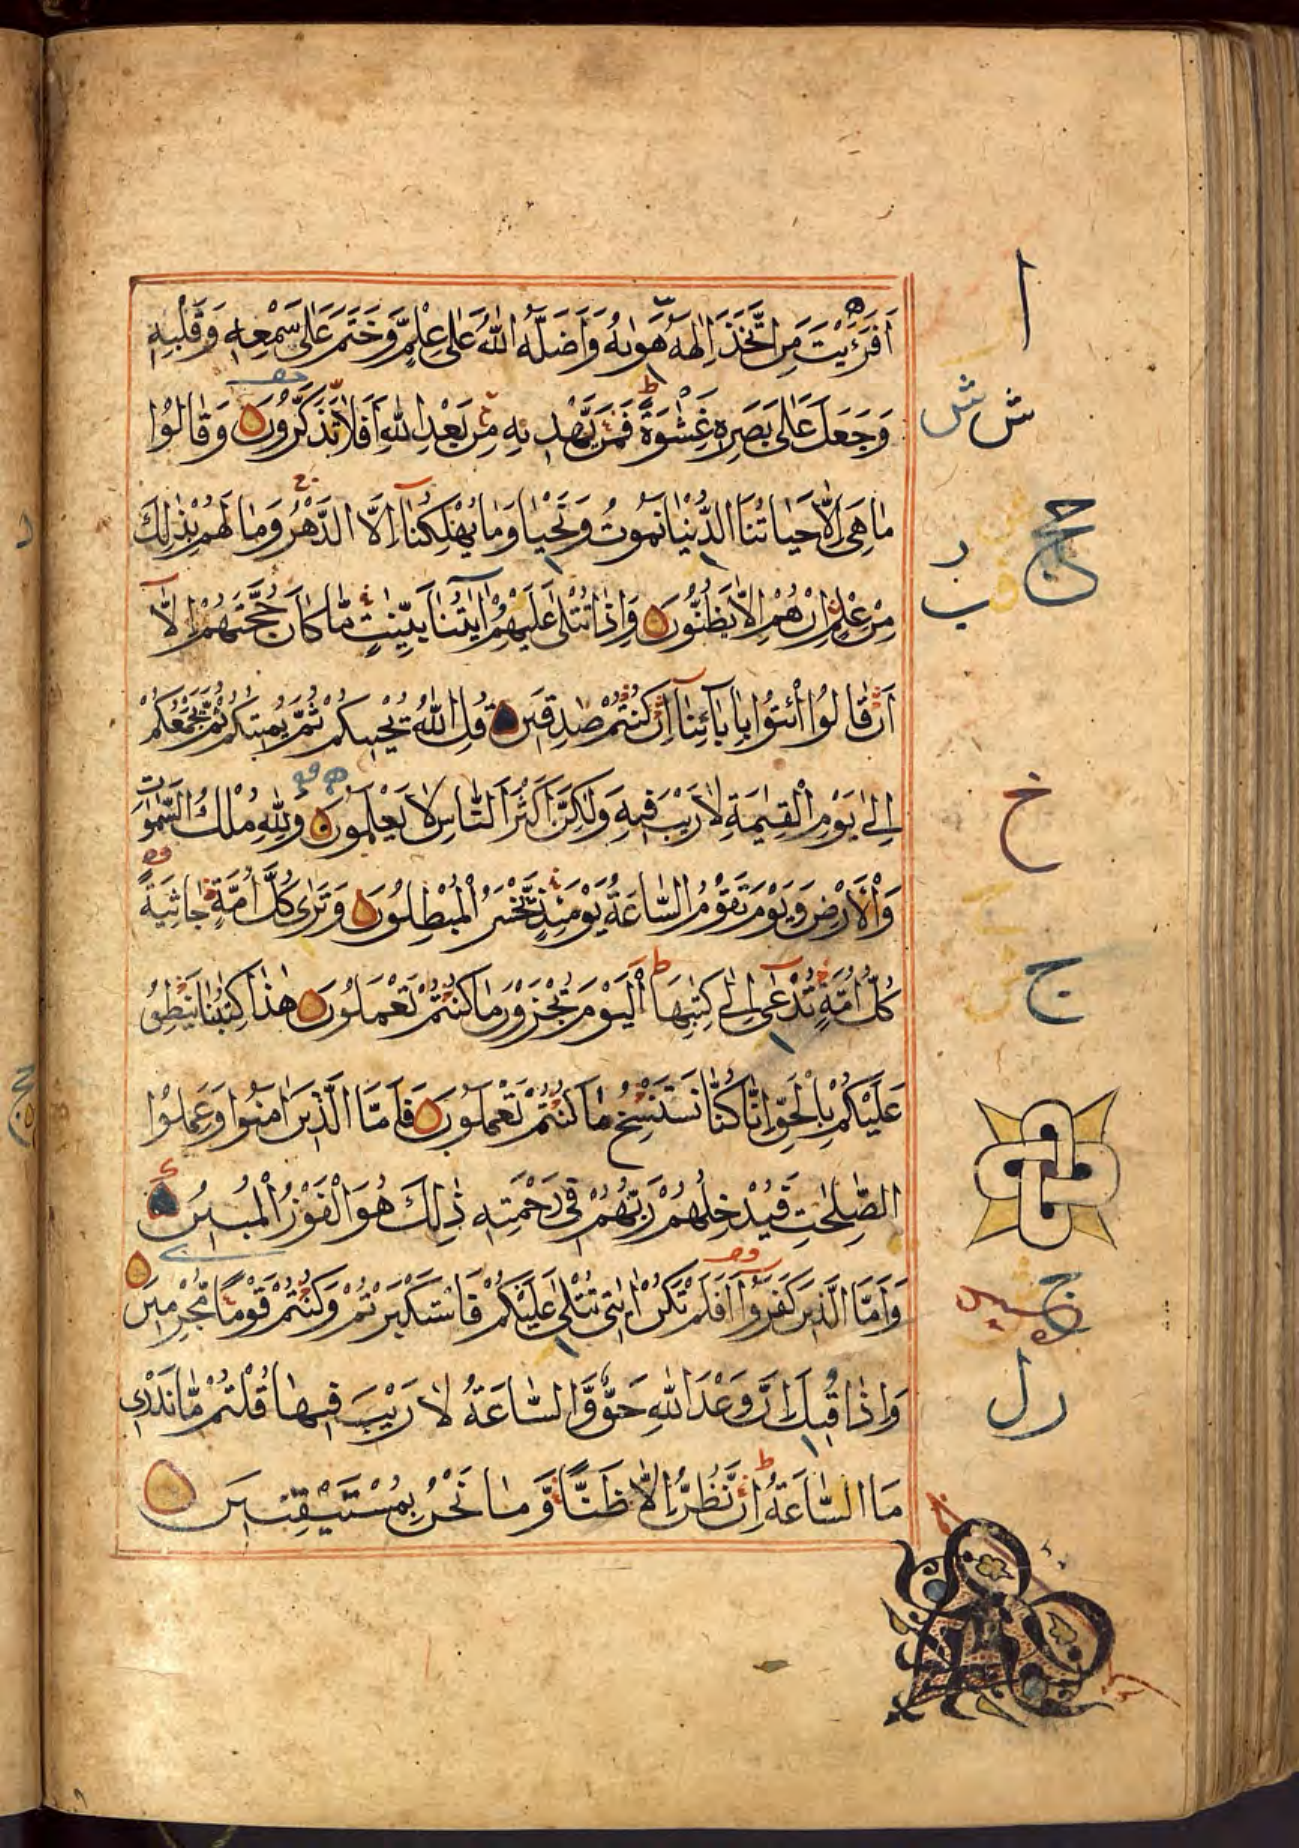 اَفَرَءَيْتَ مَنِ اتَّخَذَ اِلٰهَهُ هَوٰىهُ وَاَضَلَّهُ اللّٰهُ عَلٰى عِلْمٍ وَّخَتَمَ عَلٰى سَمْعِهٖ وَقَلْبِهٖ
وَجَعَلَ عَلٰى بَصَرِهٖ غِشٰوَةً فَمَنْ يَّهْدِيْهِ مِنْ بَعْدِ اللّٰهِ اَفَلَا تَذَكَّرُوْنَ وَقَالُوْا
مَا هِىَ اِلَّا حَيَاتُنَا الدُّنْيَا نَمُوْتُ وَنَحْيَا وَمَا يُهْلِكُنَا اِلَّا الدَّهْرُ وَمَا لَهُمْ بِذٰلِكَ
مِنْ عِلْمٍ اِنْ هُمْ اِلَّا يَظُنُّوْنَ وَاِذَا تُتْلٰى عَلَيْهِمْ اٰيٰتُنَا بَيِّنٰتٍ مَّا كَانَ حُجَّتَهُمْ اِلَّا
اَنْ قَالُوا ائْتُوْا بِاٰبَائِنَا اِنْ كُنْتُمْ صٰدِقِيْنَ قُلِ اللّٰهُ يُحْيِيْكُمْ ثُمَّ يُمِيْتُكُمْ ثُمَّ يَجْمَعُكُمْ
اِلٰى يَوْمِ الْقِيٰمَةِ لَا رَيْبَ فِيْهِ وَلٰكِنَّ اَكْثَرَ النَّاسِ لَا يَعْلَمُوْنَ وَلِلّٰهِ مُلْكُ السَّمٰوٰتِ
وَالْاَرْضِ وَيَوْمَ تَقُوْمُ السَّاعَةُ يَوْمَئِذٍ يَّخْسَرُ الْمُبْطِلُوْنَ وَتَرٰى كُلَّ اُمَّةٍ جَاثِيَةً
كُلُّ اُمَّةٍ تُدْعٰى اِلٰى كِتٰبِهَا اَلْيَوْمَ تُجْزَوْنَ مَا كُنْتُمْ تَعْمَلُوْنَ هٰذَا كِتٰبُنَا يَنْطِقُ
عَلَيْكُمْ بِالْحَقِّ اِنَّا كُنَّا نَسْتَنْسِخُ مَا كُنْتُمْ تَعْمَلُوْنَ فَاَمَّا الَّذِيْنَ اٰمَنُوْا وَعَمِلُوْا
الصّٰلِحٰتِ فَيُدْخِلُهُمْ رَبُّهُمْ فِىْ رَحْمَتِهٖ ذٰلِكَ هُوَ الْفَوْزُ الْمُبِيْنُ
وَاَمَّا الَّذِيْنَ كَفَرُوْا اَفَلَمْ تَكُنْ اٰيٰتِىْ تُتْلٰى عَلَيْكُمْ فَاسْتَكْبَرْتُمْ وَكُنْتُمْ قَوْمًا مُّجْرِمِيْنَ
وَاِذَا قِيْلَ اِنَّ وَعْدَ اللّٰهِ حَقٌّ وَّالسَّاعَةُ لَا رَيْبَ فِيْهَا قُلْتُمْ مَّا نَدْرِىْ
مَا السَّاعَةُ اِنْ نَّظُنُّ اِلَّا ظَنًّا وَّمَا نَحْنُ بِمُسْتَيْقِنِيْنَ